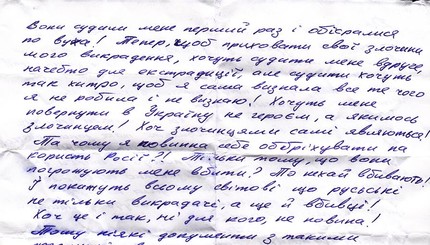 Вони судили мене перший раз і обісралися
по вуха! Тепер, щоб приховати свої злочини
мого викрадення, хочуть судити мене вдруге,
начебто для екстрадиції, але судити хочуть
так хитро, щоб я сама визнала все те чого
я не робила і не визнаю! Хочуть мене
повернути в Україну не героєм, а якимось
злочинцем! Хоч злочинцями самі являються!
Та чому я повинна себе оббріхувати на
користь Росії?! Тільки тому, що вони
погрожують мене вбити? То нехай вбивають!
Й покажуть всьому світові що руські
не тільки викрадачі, а ще й вбивці!
Хоч це і так, ні для кого, не новина!
Тому ніякі документи з такими